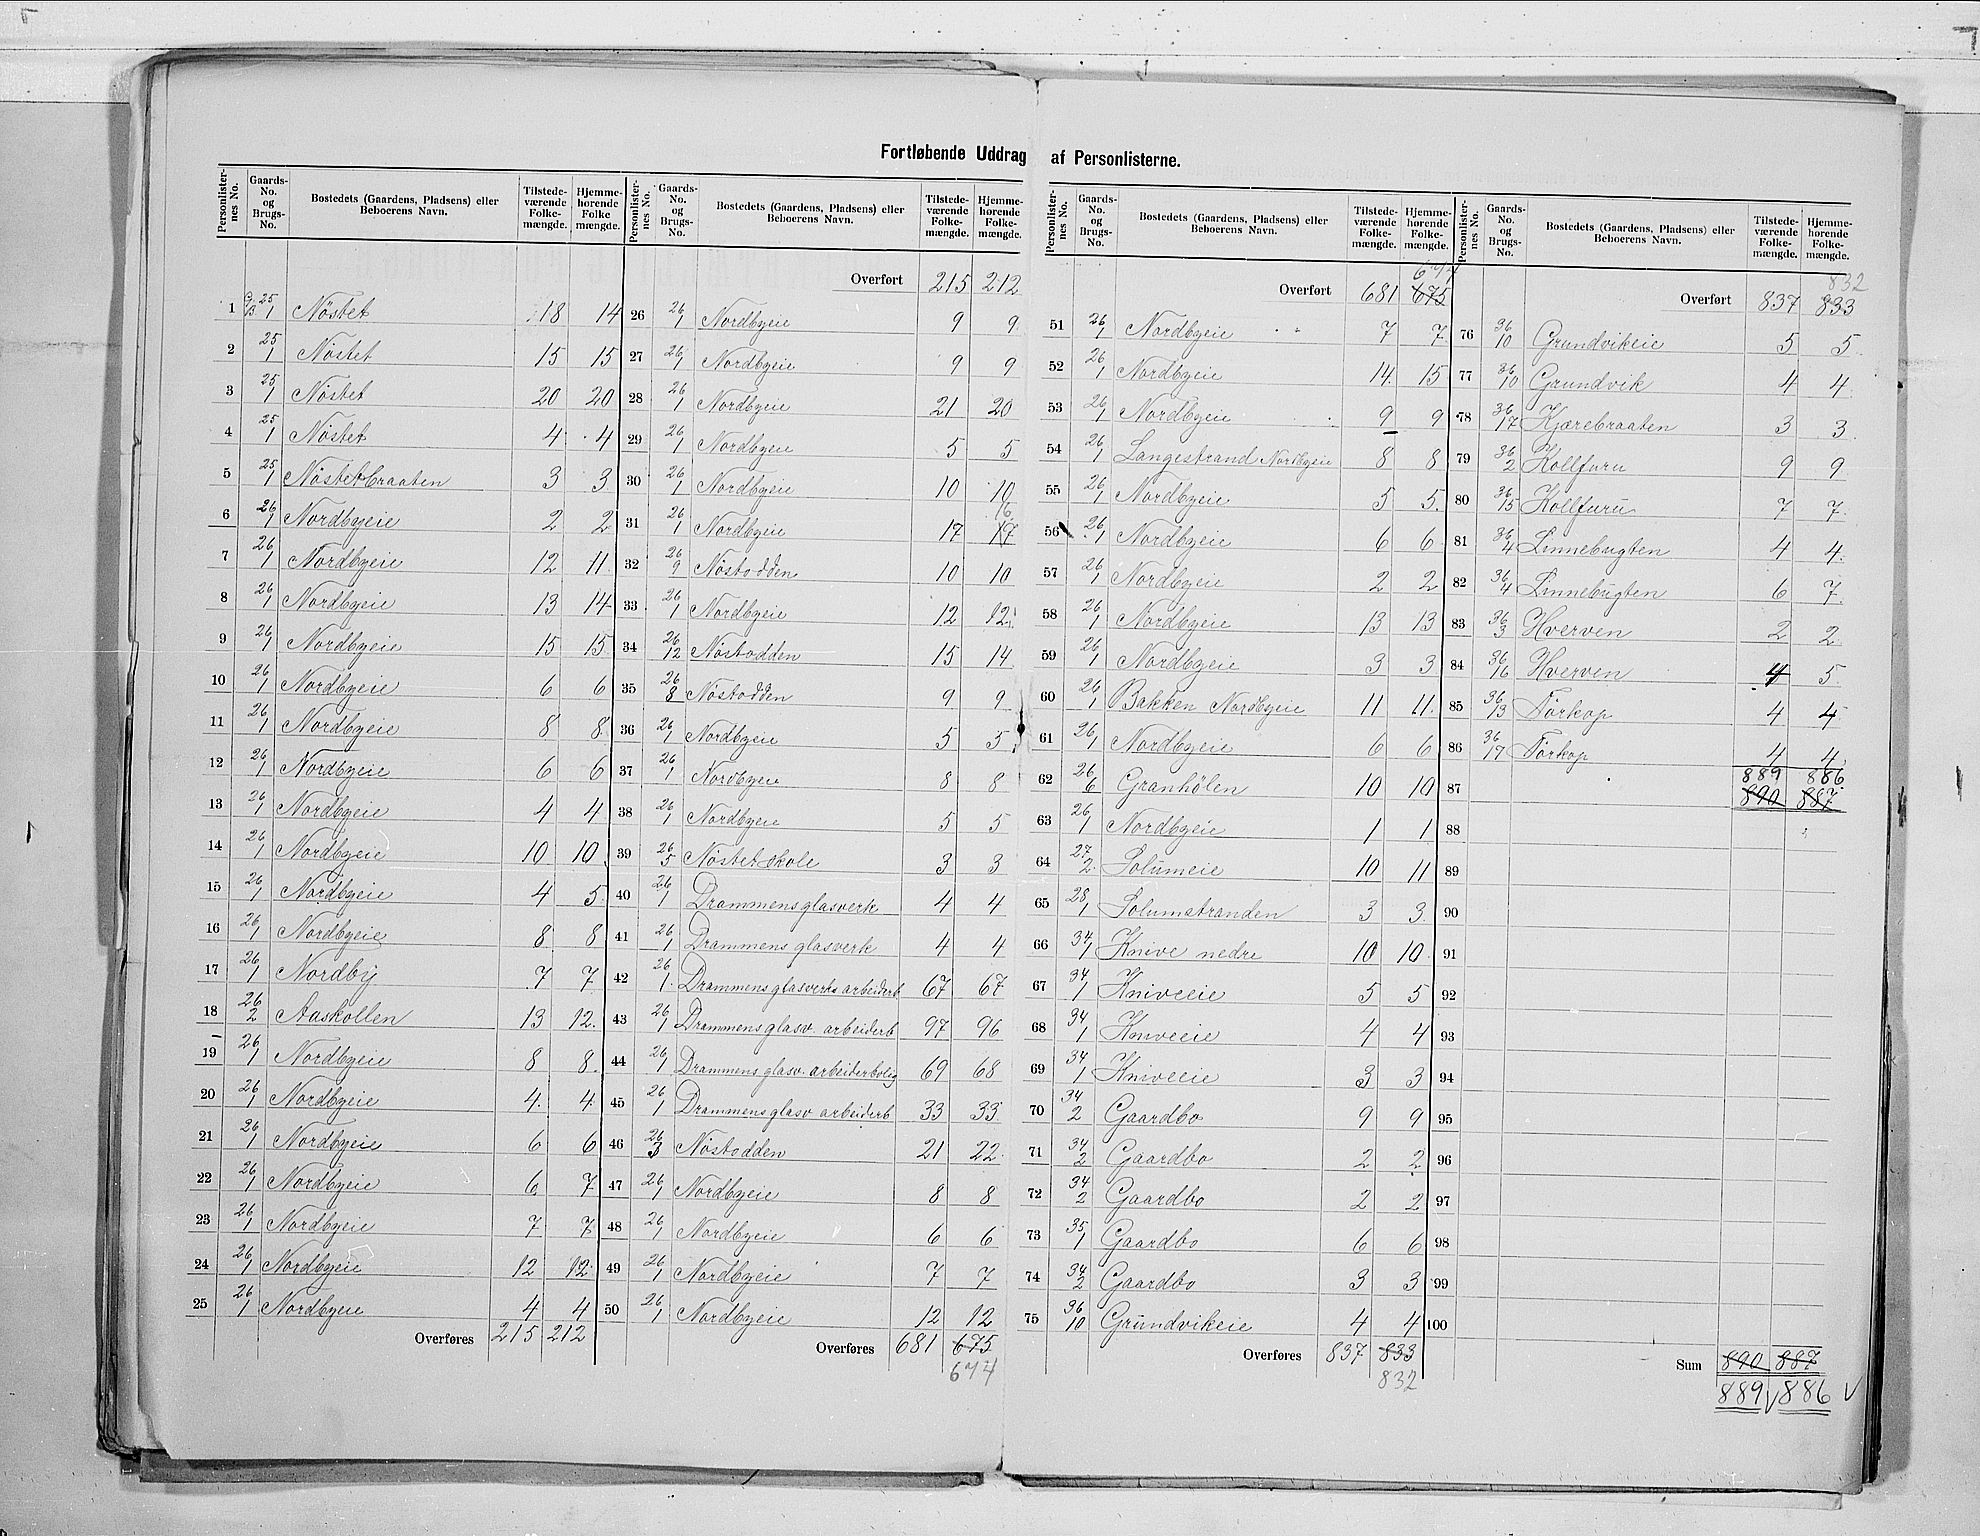 Fortløbende Uddrag af Personlisterne.
Personlisternes No. Gaards-No. og Brugs-No. Bostedets (Gaardens, Pladsens) eller Beboerens Navn. Tilstedeværende Folkemængde. Hjemmehørende Folkemængde.
1 G/B 25/1 Nöstet 18 14
2 25/1 Nöstet 15 15
3 25/1 Nöstet 20 20
4 25/1 Nöstet 4 4
5 25/1 Nöstetbraaten 3 3
6 26/1 Nordbyeie 2 2
7 26/1 Nordbyeie 12 11
8 26/1 Nordbyeie 13 14
9 26/1 Nordbyeie 15 15
10 26/1 Nordbyeie 6 6
11 26/1 Nordbyeie 8 8
12 26/1 Nordbyeie 6 6
13 26/1 Nordbyeie 4 4
14 26/1 Nordbyeie 10 10
15 26/1 Nordbyeie 4 5
16 26/1 Nordbyeie 8 8
17 26/1 Nordby 7 7
18 26/2 Aaskollen 13 12
19 26/1 Nordbyeie 8 8
20 26/1 Nordbyeie 4 4
21 26/1 Nordbyeie 6 6
22 26/1 Nordbyeie 6 7
23 26/1 Nordbyeie 7 7
24 26/1 Nordbyeie 12 12
25 26/1 Nordbyeie 4 4
Overføres 215 212
Personlisternes No. Gaards-No. og Brugs-No. Bostedets (Gaardens, Pladsens) eller Beboerens Navn. Tilstedeværende Folkemængde. Hjemmehørende Folkemængde.
Overført 215 212
26 26/1 Nordbyeie 9 9
27 26/1 Nordbyeie 9 9
28 26/1 Nordbyeie 21 20
29 26/1 Nordbyeie 5 5
30 26/1 Nordbyeie 10 10
31 26/1 Nordbyeie 17 17 16
32 26/9 Nöstodden 10 10
33 26/1 Nordbyeie 12 12
34 26/12 Nöstodden 15 14
35 26/8 Nöstodden 9 9
36 26/1 Nordbyeie 5 5
37 26/1 Nordbyeie 8 8
38 26/1 Nordbyeie 5 5
39 26/5 Nöstet skole 3 3
40 26/1 Drammens glasverk 4 4
41 26/1 Drammens glasverk 4 4
42 26/1 Drammens glasverks arbeiderb 67 67
43 26/1 Drammens glasv. arbeiderb 97 96
44 26/1 Drammens glasv. arbeiderbolig 69 68
45 26/1 Drammens glasv arbeiderb 33 33
46 26/3 Nöstodden 21 22
47 26/1 Nordbyeie 8 8
48 26/1 Nordbyeie 6 6
49 26/1 Nordbyeie 7 7
50 26/1 Nordbyeie 12 12
Overføres 681 675
674
Personlisternes No. Gaards-No. og Brugs-No. Bostedets (Gaardens, Pladsens) eller Beboerens Navn. Tilstedeværende Folkemængde. Hjemmehørende Folkemængde.
674
Overført 681 675
51 26/1 Nordbyeie 7 7
52 26/1 Nordbyeie 14 15
53 26/1 Nordbyeie 9 9
54 26/1 Langestrand Nordbyeie 8 8
55 26/1 Nordbyeie 5 5
56 26/1 Nordbyeie 6 6
57 26/1 Nordbyeie 2 2
58 26/1 Nordbyeie 13 13
59 26/1 Nordbyeie 3 3
60 26/1 Bakken Nordbyeie 11 11
61 26/1 Nordbyeie 6 6
62 26/6 Granhölen 10 10
63 26/1 Nordbyeie 1 1
64 27/2 Solumeie 10 11
65 28/1 Solumstranden 3 3
66 34/1 Knive nedre 10 10
67 34/1 Kniveeie 5 5
68 34/1 Kniveeie 4 4
69 34/1 Kniveeie 3 3
70 34/2 Gaardbo 9 9
71 34/2 Gaardbo 2 2
72 34/2 Gaardbo 2 2
73 35/1 Gaardbo 6 6
74 34/2 Gaardbo 3 3
75 36/10 Grundvikeie 4 4
Overføres 837 833
832
Personlisternes No. Gaards-No. og Brugs-No. Bostedets (Gaardens, Pladsens) eller Beboerens Navn. Tilstedeværende Folkemængde. Hjemmehørende Folkemængde.
832
Overført 837 833
76 36/10 Grundvikeie 5 5
77 36/10 Grundvik 4 4
78 36/17 Kjærebraaten 3 3
79 36/2 Kollfuru 9 9
80 36/15 Kollfuru 7 7
81 36/4 Linnebugten 4 4
82 36/4 Linnebugten 6 7
83 36/3 Hverven 2 2
84 36/16 Hverven 4 5
85 36/13 Törkop 4 4
86 36/17 Törkop 4 4
889 886
87 890 887
88
89
90
91
92
93
94
95
96
97
98
99
100
Sum 890 887
889 886